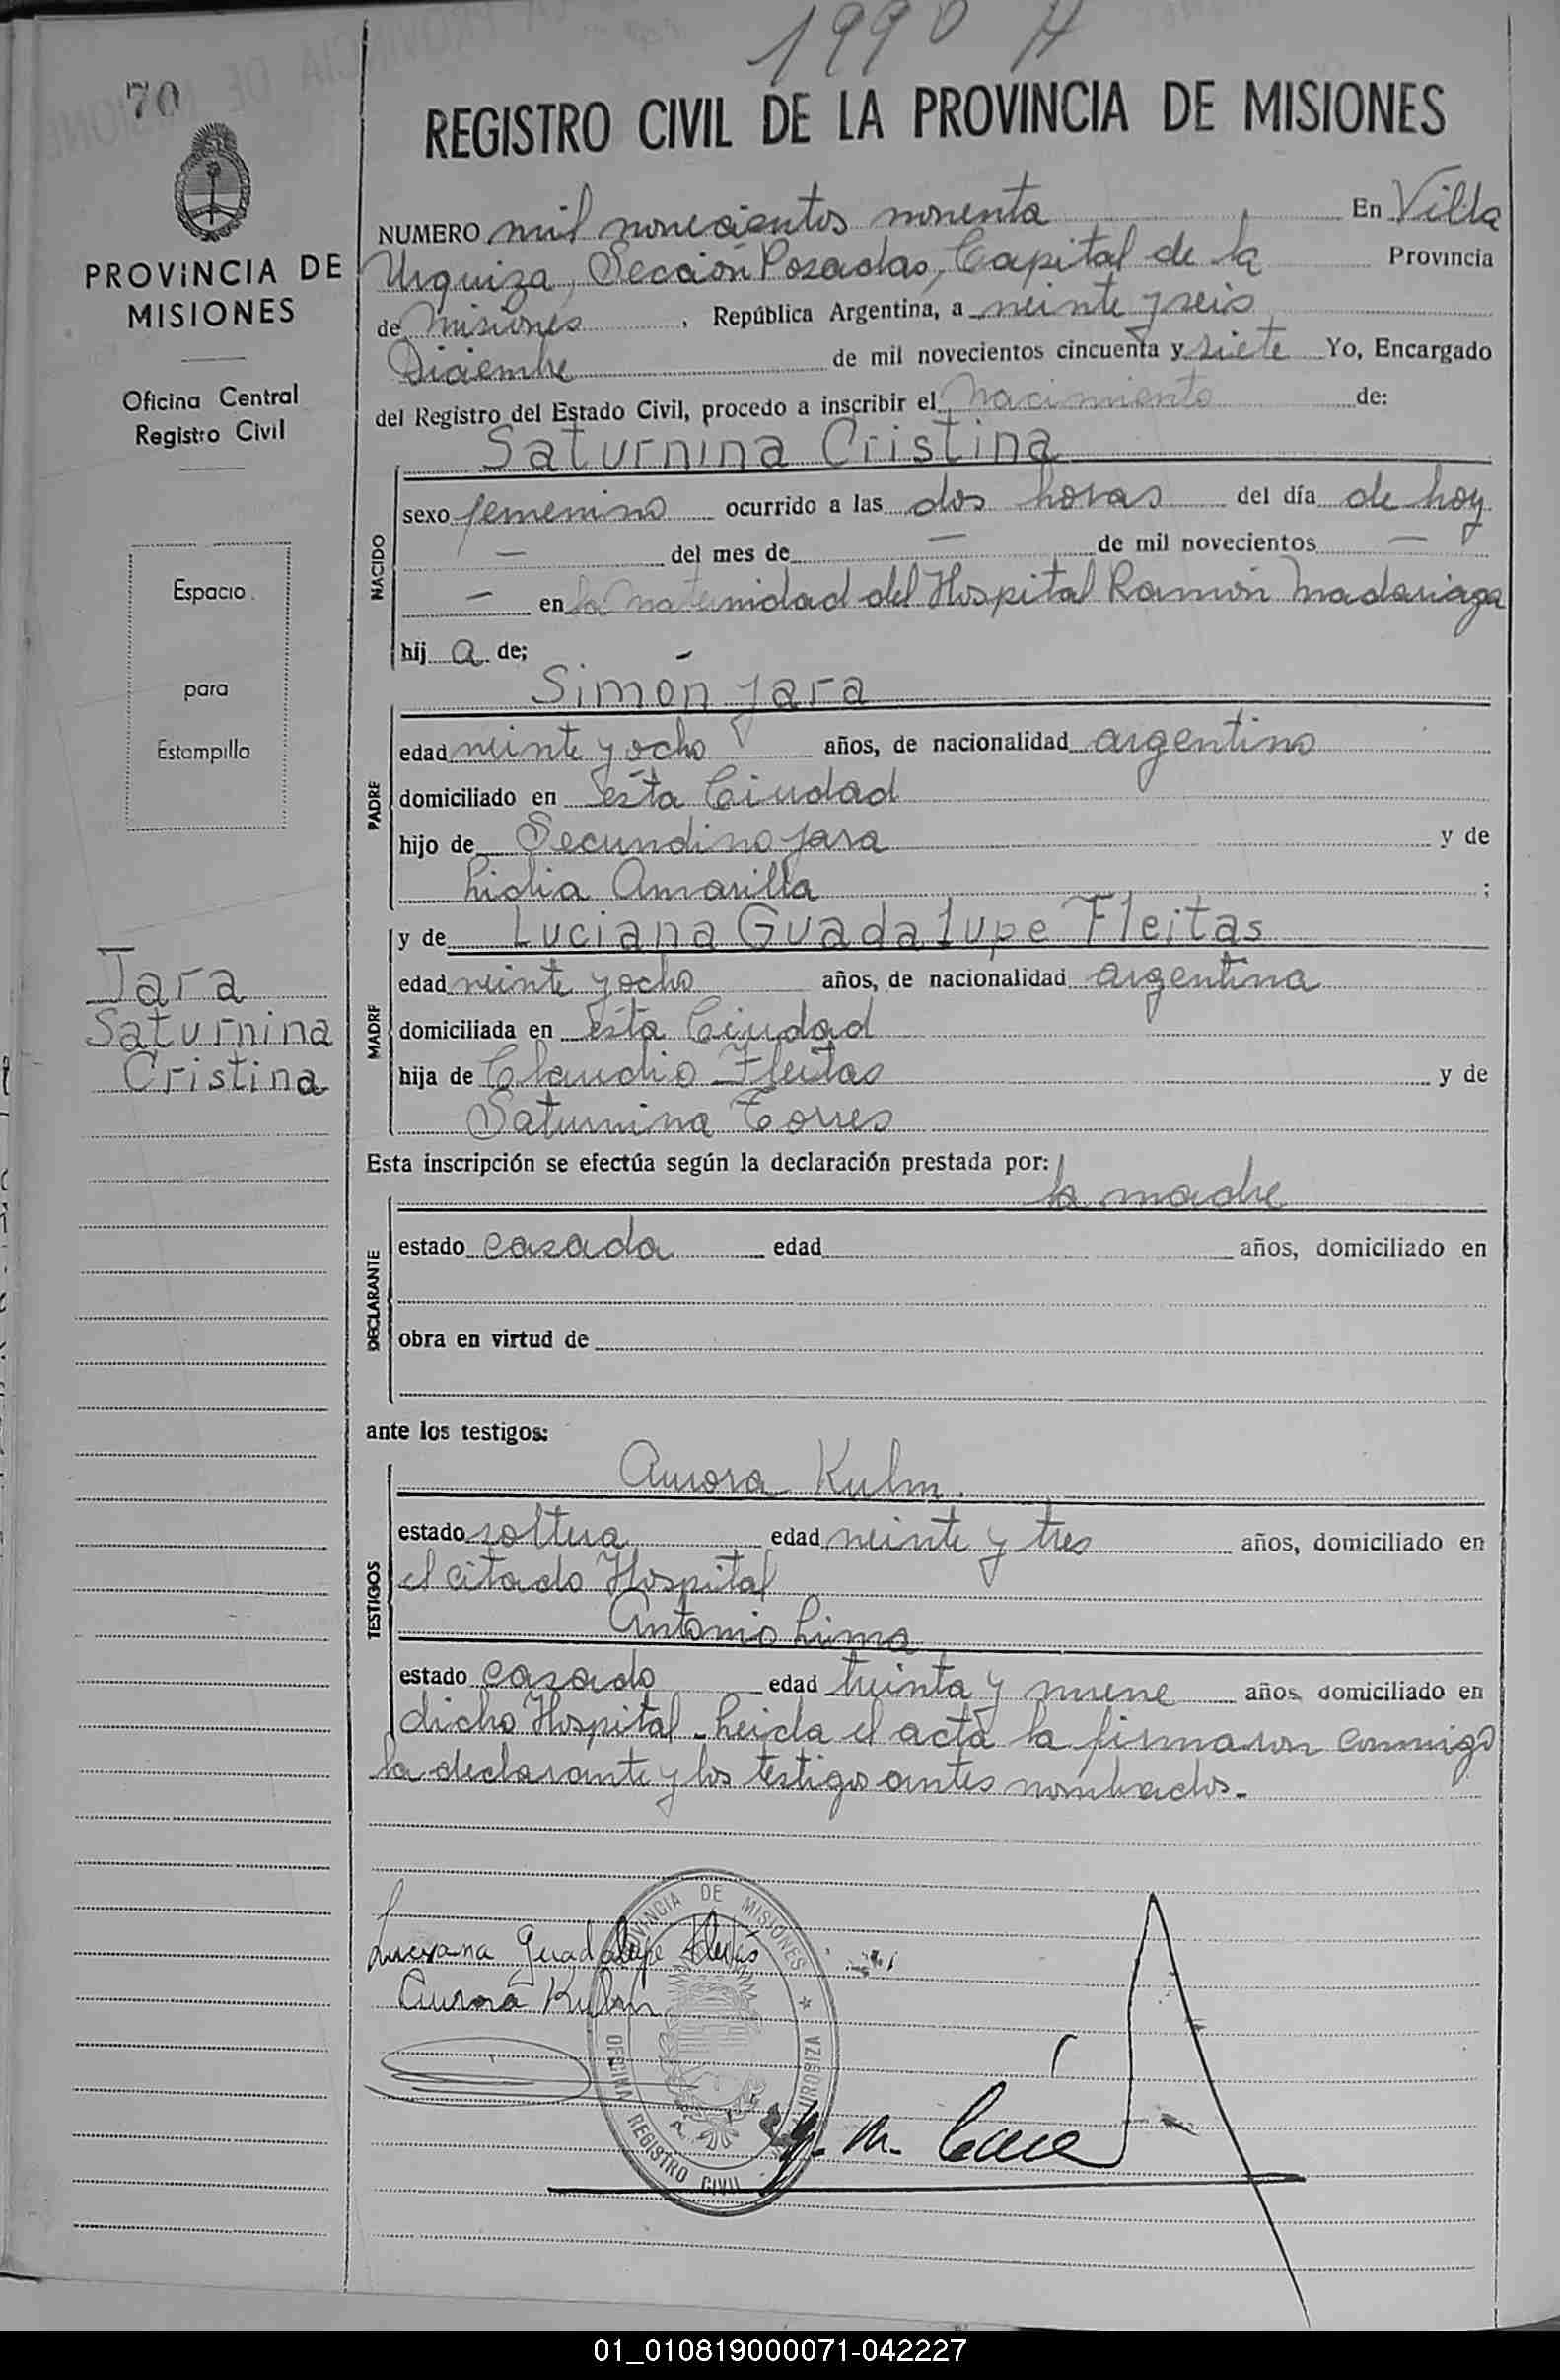 1990 A
70
REGISTRO CIVIL DE LA PROVINCIA DE MISIONES
PROVINCIA DE
MISIONES
Oficina Central
Registro Civil
Espacio
para
Estampilla
Jara
Saturnina
Cristina
NUMERO mil novecientos noventa En Villa
Urquiza, Sección Posadas, Capital de la Provincia
de Misiones, República Argentina, a veinte y seis
Diciembre de mil novecientos cincuenta y siete Yo, Encargado
del Registro del Estado Civil, procedo a inscribir el Nacimiento de:
Saturnina Cristina
NACIDO
sexo femenino ocurrido a las dos horas del día de hoy
— del mes de — de mil novecientos —
— en la Maternidad del Hospital Ramón Madariaga
hij a de;
Simón Jara
PADRE
edad veinte y ocho años, de nacionalidad argentino
domiciliado en ésta Ciudad
hijo de Secundino Jara y de
Lidia Amarilla ;
y de Luciana Guadalupe Fleitas
MADRE
edad veinte y ocho años, de nacionalidad argentina
domiciliada en ésta Ciudad
hija de Claudio Fleitas y de
Saturnina Torres
Esta inscripción se efectúa según la declaración prestada por:
la madre
DECLARANTE
estado casada edad años, domiciliado en
obra en virtud de
ante los testigos:
Aurora Kulm
TESTIGOS
estado soltera edad veinte y tres años, domiciliado en
el citado Hospital
Antonio Lima
estado casado edad treinta y nueve años domiciliado en
dicho Hospital. Leida el acta la firmaron conmigo
la declarante y los testigos antes nombrados.-
Luciana Guadalupe Fleitas
Aurora Kulm
PROVINCIA DE MISIONES
OFICINA REGISTRO CIVIL
URQUIZA
01_010819000071-042227